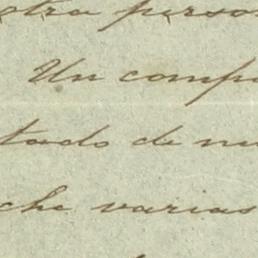 stra perso
Un comp
tado de nu
che varias